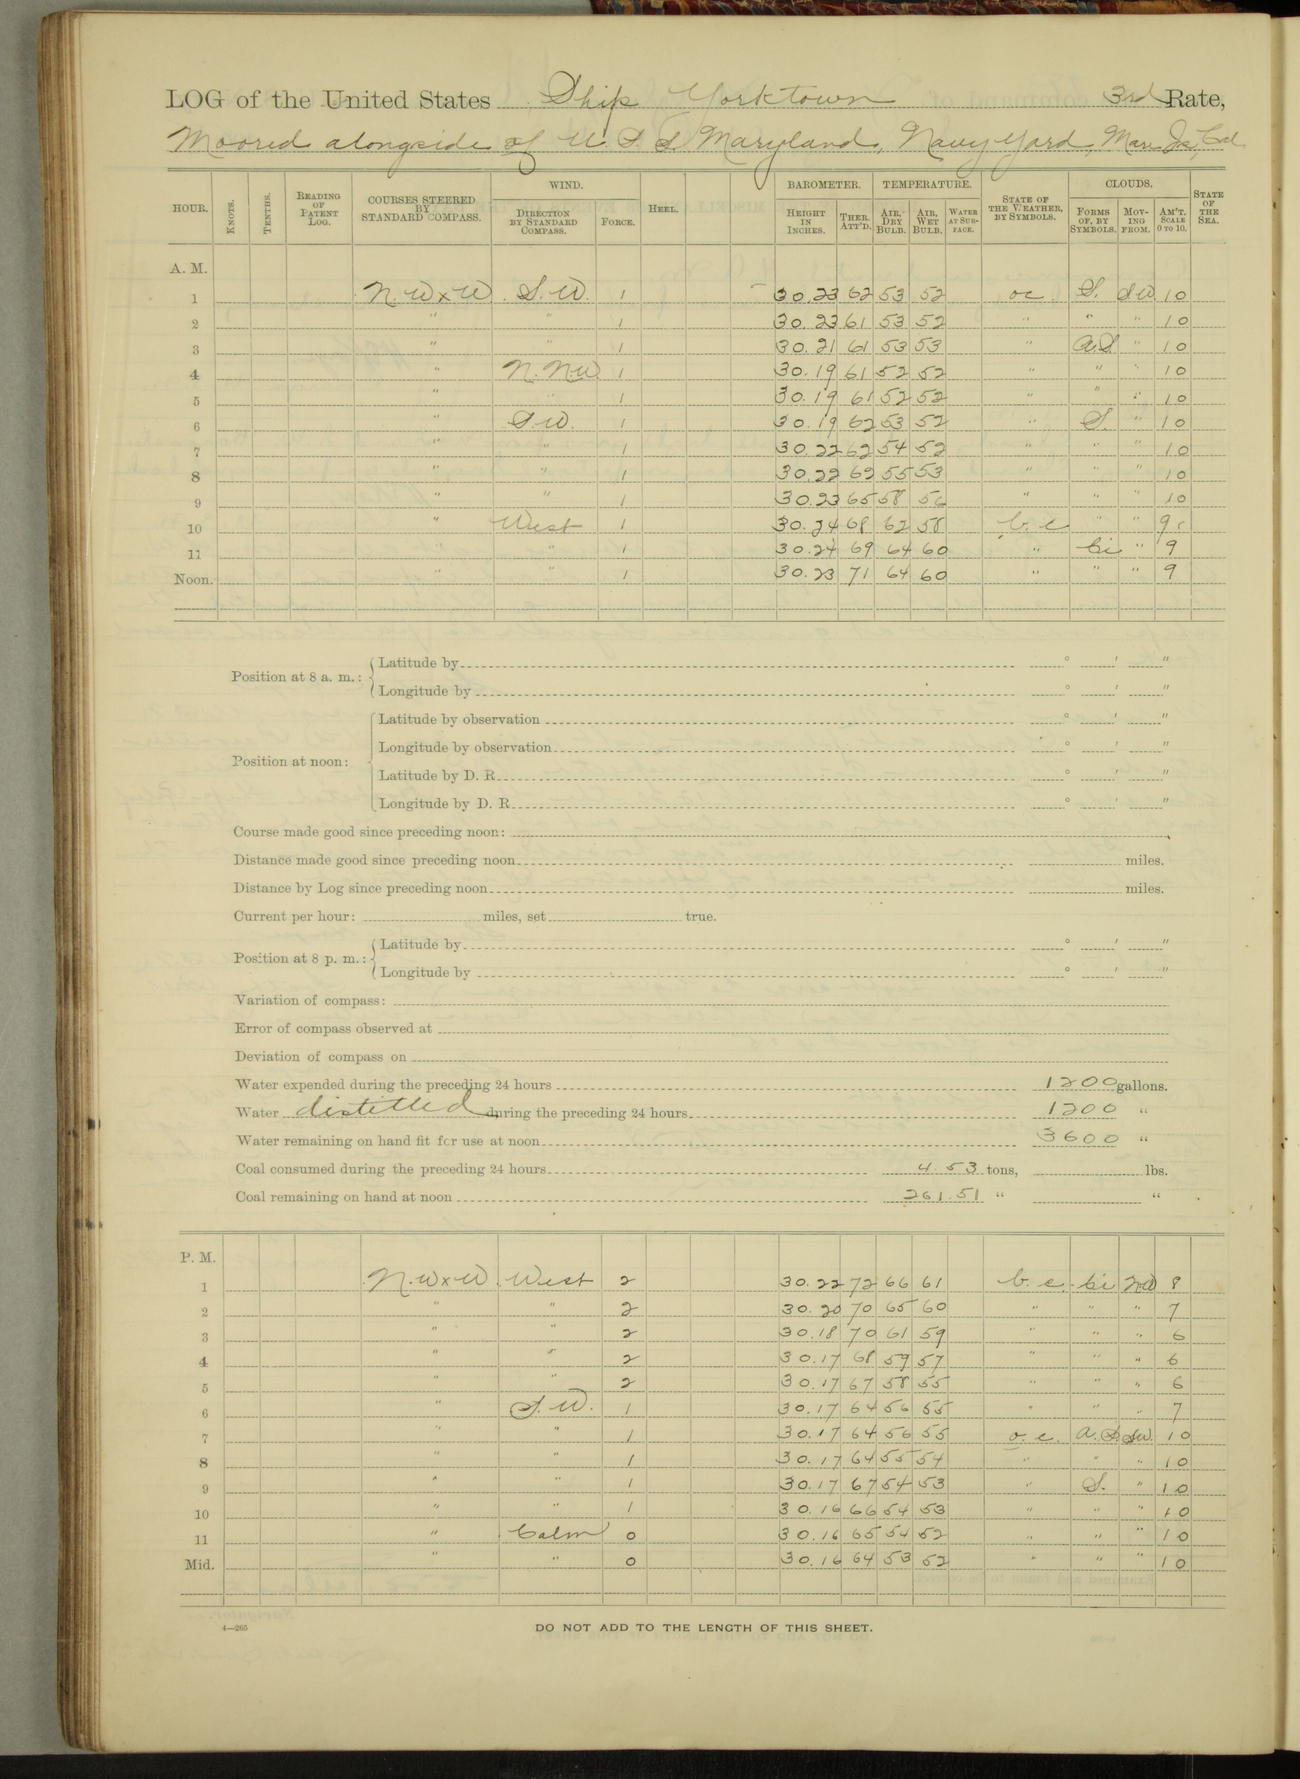 LOG of the United States Ship Yorktown 3rd Rate,
Moored alongside of U.S.S. Maryland, Navy Yard, Mare Is, Cal
HOUR. KNOTS. TENTHS. READING OF PATENT LOG. COURSES STEERED BY STANDARD COMPASS. WIND. DIRECTION BY STANDARD COMPASS. FORCE. HEEL. BAROMETER. HEIGHT IN INCHES. THER. ATT'D. TEMPERATURE. AIR, DRY BULB. AIR, WET BULB. WATER AT SURFACE. STATE OF THE WEATHER, BY SYMBOLS. CLOUDS. FORMS OF, BY SYMBOLS. MOVING FROM. AM'T. SCALE 0 TO 10. STATE OF THE SEA.
A. M.
1 N.WxW S.W. 1 30.23 62 53 52 oc S. SW 10
2 " " 1 30.23 61 53 52 " " " 10
3 " " 1 30.21 61 53 53 " A.S " 10
4 " N.NW 1 30.19 61 52 52 " " " 10
5 " " 1 30.19 61 52 52 " " " 10
6 " S.W. 1 30.19 62 53 52 " S. " 10
7 " " 1 30.22 62 54 52 " " " 10
8 " " 1 30.22 62 55 53 " " " 10
9 " " 1 30.23 65 58 56 " " " 10
10 " West 1 30.24 68 62 58 b.c " " 9
11 " " 1 30.24 69 64 60 " Ci " 9
Noon. " " 1 30.23 71 64 60 " " " 9
Position at 8 a. m.: Latitude by ° ' "
Longitude by ° ' "
Position at noon: Latitude by observation ° ' "
Longitude by observation ° ' "
Latitude by D. R. ° ' "
Longitude by D. R. ° ' "
Course made good since preceding noon:
Distance made good since preceding noon miles.
Distance by Log since preceding noon miles.
Current per hour: miles, set true.
Position at 8 p. m.: Latitude by ° ' "
Longitude by ° ' "
Variation of compass:
Error of compass observed at
Deviation of compass on
Water expended during the preceding 24 hours 1200 gallons.
Water distilled during the preceding 24 hours 1200 "
Water remaining on hand fit for use at noon 3600 "
Coal consumed during the preceding 24 hours 4.53 tons, lbs.
Coal remaining on hand at noon 261.51 " "
P. M.
1 N.WxW West 2 30.22 72 66 61 b.c. Ci NW 8
2 " " 2 30.20 70 65 60 " " " 7
3 " " 2 30.18 70 61 59 " " " 6
4 " " 2 30.17 68 59 57 " " " 6
5 " " 2 30.17 67 58 55 " " " 6
6 " S.W. 1 30.17 64 56 55 " " " 7
7 " " 1 30.17 64 56 55 o.c. A.S. SW. 10
8 " " 1 30.17 64 55 54 " " " 10
9 " " 1 30.17 67 54 53 " S. " 10
10 " " 1 30.16 66 54 53 " " " 10
11 " Calm 0 30.16 65 54 52 " " " 10
Mid. " " 0 30.16 64 53 52 " " " 10
4—265
DO NOT ADD TO THE LENGTH OF THIS SHEET.